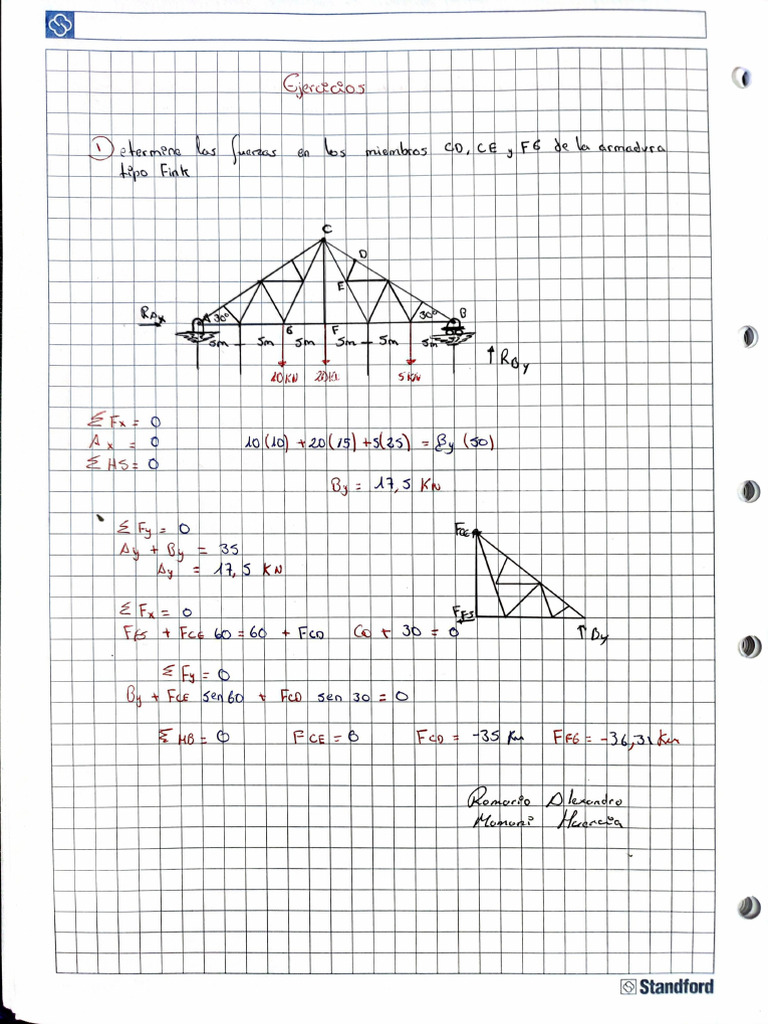 Ejercicios
① etermine las fuerzas en los miembros CD, CE y FG de la armadura
tipo Fink
C
D
E
RAx
A 30°
30° B
G F
5m 5m 5m 5m 5m 5m
↑ RBy
10 KN 20 KN 5 KN
Σ Fx = 0
Ax = 0 10(10) + 20(15) + 5(25) = By (50)
Σ HS = 0
By = 17,5 KN
Σ Fy = 0
Ay + By = 35
Ay = 17,5 KN
FCE
Σ Fx = 0
FFS
FFS + FCE 60 = 60 + FCD CO + 30 = 0
↑ By
Σ Fy = 0
By + FCE sen 60 + FCD sen 30 = 0
Σ MB = 0 FCE = 0 FCD = -35 KN FFG = -36,31 KN
Romario Alexandro
Mamani Huencia
Standford